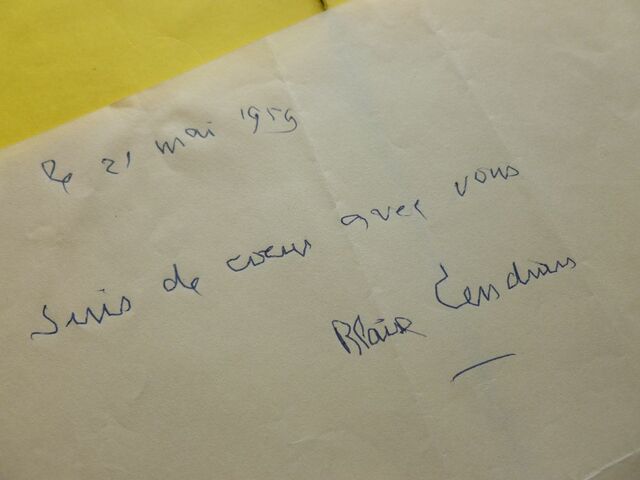 le 21 mai 1959
suis de coeur avec vous
Blaise Cendrars